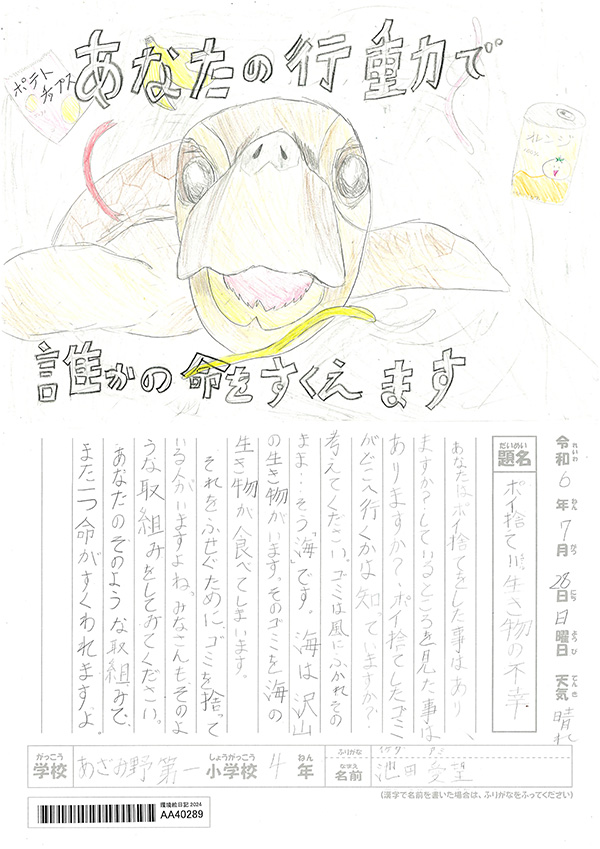 あなたの行動で
ポテト
チップス
オレンジ
誰かの命をすくえます
令和6年7月28日日曜日 天気 晴れ
れいわ ねん がつ にち ようび てんき
だいめい
題名 ポイ捨て!!!生き物の不幸
あなたはポイ捨てをした事はあり
ますか?しているところを見た事は
ありますか?、ポイ捨てしたゴミ
がどこへ行くかは知っていますか?
考えてください。ゴミは風にふかれその
まま…そう「海」です。 海は沢山
の生き物がいます。そのゴミを海の
生き物が食べてしまいます。
それをふせぐために、ゴミを捨って
いる人がいますよね。みなさんもそのよ
うな取組みをしてみてください。
あなたのそのような取組みで、
また一つ命がすくわれますよ。
がっこう しょうがっこう ねん ふりがな
学校 あざみ野第一小学校 4年
なまえ
名前 池田愛望
(漢字で名前を書いた場合は、ふりがなをふってください)
環境絵日記2024
AA40289